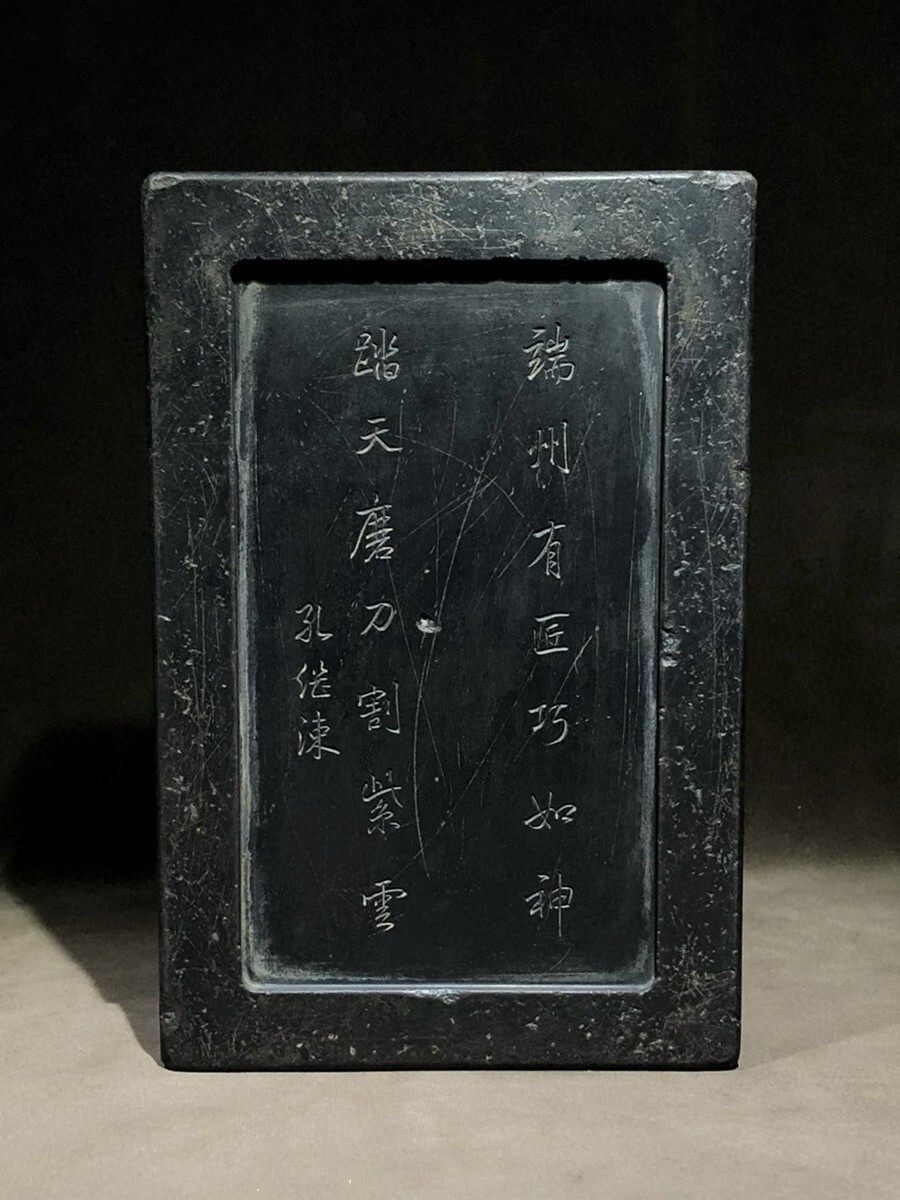 端州有匠巧如神
踏天磨刀割紫雲
孔继涑